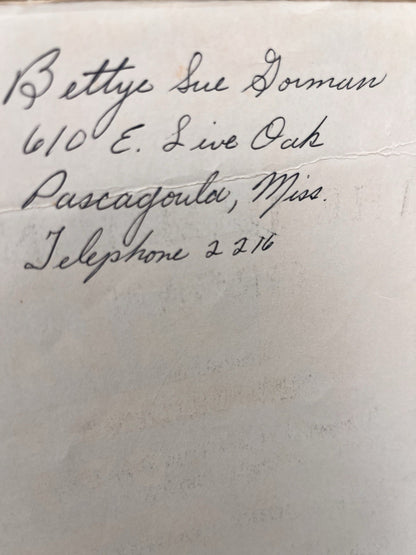 Bettye Sue Gorman
610 E. Live Oak
Pascagoula, Miss.
Telephone 2216